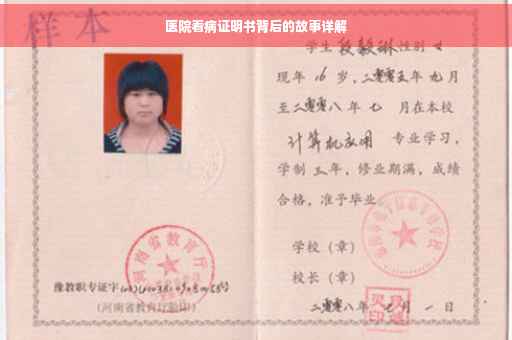 医院看病证明书背后的故事详解
样本
学生段毅琳性别女
现年16岁，二零零五年九月
至二零零八年七月在本校
计算机应用 专业学习，
学制三年，修业期满，成绩
合格，准予毕业。
学校（章）
校长（章）
二零零八年七月一日
河南省教育厅
豫教职专证字
（河南省教育厅验印）